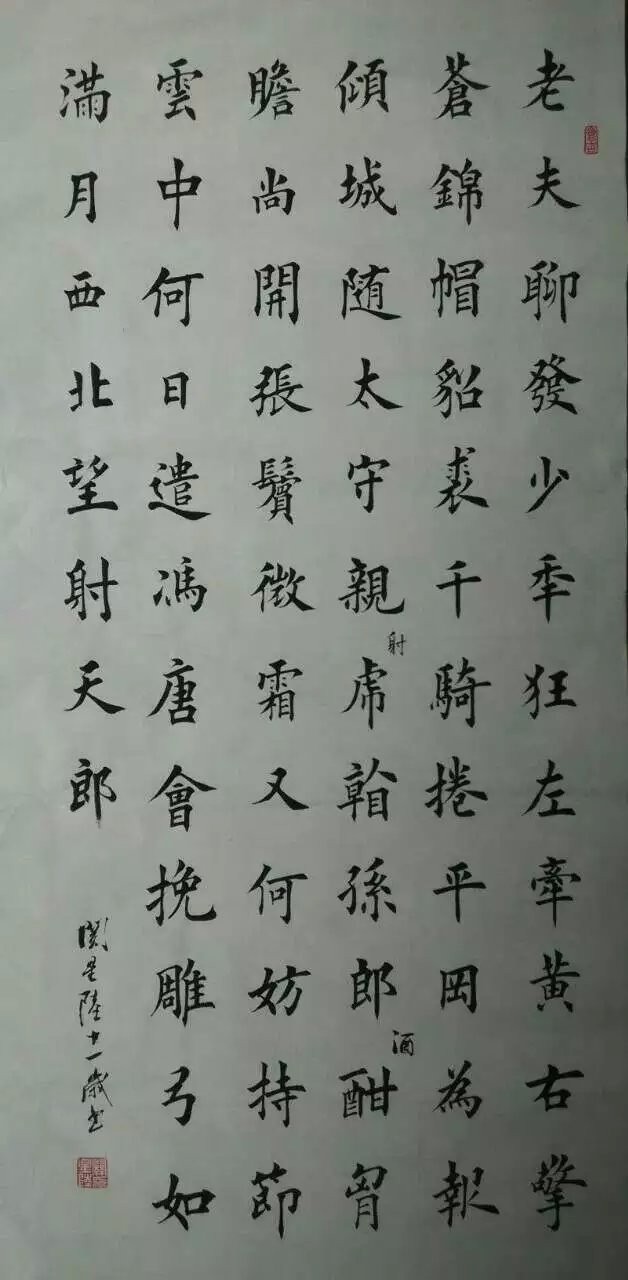 老夫聊發少秊狂左牽黃右擎
蒼錦帽貂裘千騎捲平岡為報
傾城随太守親射虎看孫郎酒酣胷
膽尚開張鬢微霜又何妨持節
雲中何日遣馮唐會挽雕弓如
滿月西北望射天郎
星陸十一歲書